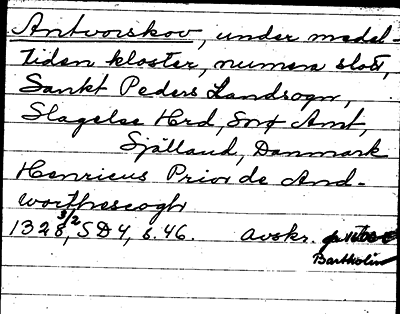 Antvorskov, under medel-
tiden kloster, numera slott,
Sankt Peders Landsogn,
Slagelse Hrd, Sorø Amt,
Sjælland, Danmark
Henricus Prior de And-
worthescogh
1328 3/2, SD4, s. 46. avskr.
Bartholin